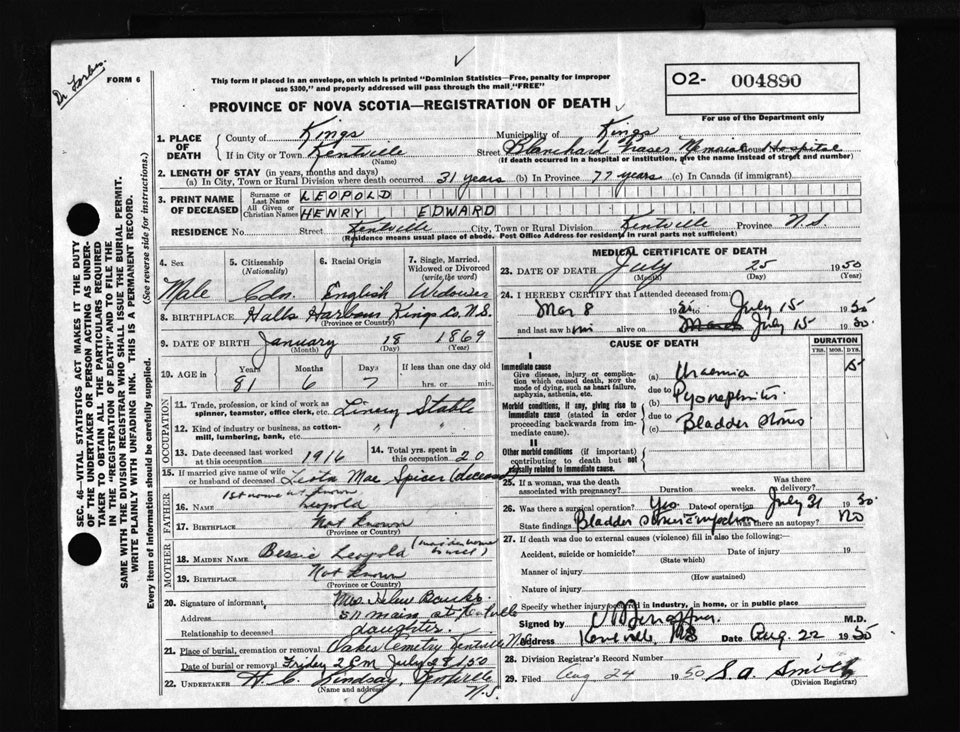 Dr Forbes.
FORM 6
This form if placed in an envelope, on which is printed "Dominion Statistics—Free, penalty for improper
use $300," and properly addressed will pass through the mail "FREE"
O2- 004890
For use of the Department only
PROVINCE OF NOVA SCOTIA—REGISTRATION OF DEATH
1. PLACE OF DEATH County of Kings Municipality of Kings
If in City or Town Kentville (Name) Street Blanchard Fraser Memorial Hospital
(If death occurred in a hospital or institution, give the name instead of street and number)
2. LENGTH OF STAY (in years, months and days)
(a) In City, Town or Rural Division where death occurred 31 years (b) In Province 77 years (c) In Canada (if immigrant)
3. PRINT NAME OF DECEASED Surname or Last Name LEOPOLD
All Given or Christian Names HENRY EDWARD
RESIDENCE No. Street Kentville City, Town or Rural Division Kentville Province N.S.
(Residence means usual place of abode. Post Office Address for residents in rural parts not sufficient)
4. Sex Male
5. Citizenship (Nationality) Cdn.
6. Racial Origin English
7. Single, Married, Widowed or Divorced (write the word) Widower
8. BIRTHPLACE Halls Harbour Kings Co. N.S.
(Province or Country)
9. DATE OF BIRTH January (Month) 18 (Day) 1869 (Year)
10. AGE in Years 81 Months 6 Days 7 If less than one day old hrs. or min.
OCCUPATION
11. Trade, profession, or kind of work as spinner, teamster, office clerk, etc. Livery Stable
12. Kind of industry or business, as cotton-mill, lumbering, bank, etc. " "
13. Date deceased last worked at this occupation 1916
14. Total yrs. spent in this occupation 20
15. If married give name of wife or husband of deceased Lista Mae Spicer (deceased)
FATHER
16. Name 1st name not known Leopold
17. Birthplace Not Known
(Province or Country)
MOTHER
18. Maiden Name Bessie Leopold (maiden name
19. Birthplace Not Known
(Province or Country)
20. Signature of informant, Mrs. Helen
Address Main st Kentville
Relationship to deceased daughter.
21. Place of burial, cremation or removal Oakes Cemetry Kentville N.S.
Date of burial or removal Friday 2 P.M July 28 1950
22. UNDERTAKER H. C. Lindsay, N.S.
(Name and address)
MEDICAL CERTIFICATE OF DEATH
23. DATE OF DEATH July (Month) 25 (Day) 1950 (Year)
24. I HEREBY CERTIFY that I attended deceased from:
Mar 8 19 to July 15 1950
and last saw him alive on July 15 1950
CAUSE OF DEATH
DURATION
YRS. MOS. DYS.
I
Immediate cause
Give disease, injury or complication which caused death, NOT the mode of dying, such as heart failure, asphyxia, asthenia, etc.
(a) Uraemia 15
due to
Morbid conditions, if any, giving rise to immediate cause (stated in order proceeding backwards from immediate cause).
(b) Pyonephritis
due to
(c) Bladder stones
II
Other morbid conditions (if important) contributing to death but not causally related to immediate cause.
25. If a woman, was the death associated with pregnancy? Duration weeks. Was there a delivery?
26. Was there a surgical operation? Yes Date of operation July 21 1950
State findings Bladder stones infection Was there an autopsy? No
27. If death was due to external causes (violence) fill in also the following:—
Accident, suicide or homicide? Date of injury 19
(State which)
Manner of injury
(How sustained)
Nature of injury
Specify whether injury occurred in industry, in home, or in public place
Signed by M.D.
Address Kentville, NS Date Aug. 22 1950
28. Division Registrar's Record Number
29. Filed Aug 24 1950 S.A. Smith
(Division Registrar)
SEC. 46—VITAL STATISTICS ACT MAKES IT THE DUTY
OF THE UNDERTAKER OR PERSON ACTING AS UNDER-
TAKER TO OBTAIN ALL THE PARTICULARS REQUIRED
IN THE "REGISTRATION OF DEATH" AND TO FILE THE
SAME WITH THE DIVISION REGISTRAR WHO SHALL ISSUE THE BURIAL PERMIT.
WRITE PLAINLY WITH UNFADING INK. THIS IS A PERMANENT RECORD.
Every item of information should be carefully supplied. (See reverse side for instructions.)